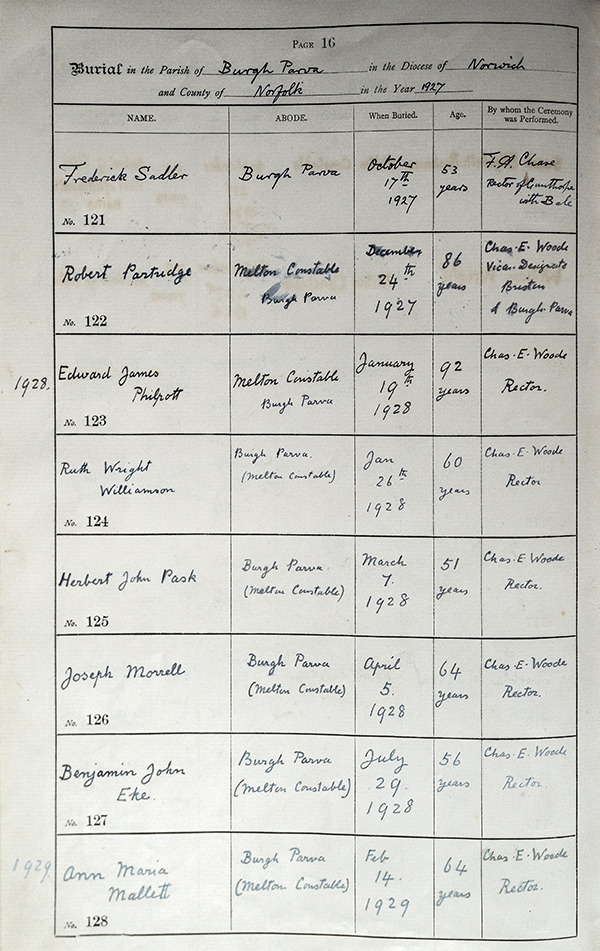 PAGE 16
Burial in the Parish of Burgh Parva in the Diocese of Norwich
and County of Norfolk in the Year 1927
NAME. ABODE. When Buried. Age. By whom the Ceremony was Performed.
Frederick Sadler
No. 121
Burgh Parva
October
17th
1927
53
years
F.A. Chase
Rector of Gunthorpe
with Bale
Robert Partridge
No. 122
Melton Constable
Burgh Parva
December
24th
1927
86
years
Chas. E. Woode
Vicar Designate
Briston
& Burgh Parva
1928.
Edward James
Philpott
No. 123
Melton Constable
Burgh Parva
January
19th
1928
92
years
Chas. E. Woode
Rector.
Ruth Wright
Williamson
No. 124
Burgh Parva.
(Melton Constable)
Jan
26th
1928
60
years
Chas. E. Woode
Rector
Herbert John Pask
No. 125
Burgh Parva.
(Melton Constable)
March
7.
1928
51
years
Chas. E. Woode
Rector.
Joseph Morrell
No. 126
Burgh Parva
(Melton Constable)
April
5.
1928
64
years
Chas. E. Woode
Rector.
Benjamin John
Eke.
No. 127
Burgh Parva
(Melton Constable)
July
29.
1928
56
years
Chas. E. Woode
Rector.
1929.
Ann Maria
Mallett
No. 128
Burgh Parva
(Melton Constable)
Feb
14.
1929
64
years
Chas. E. Woode
Rector.